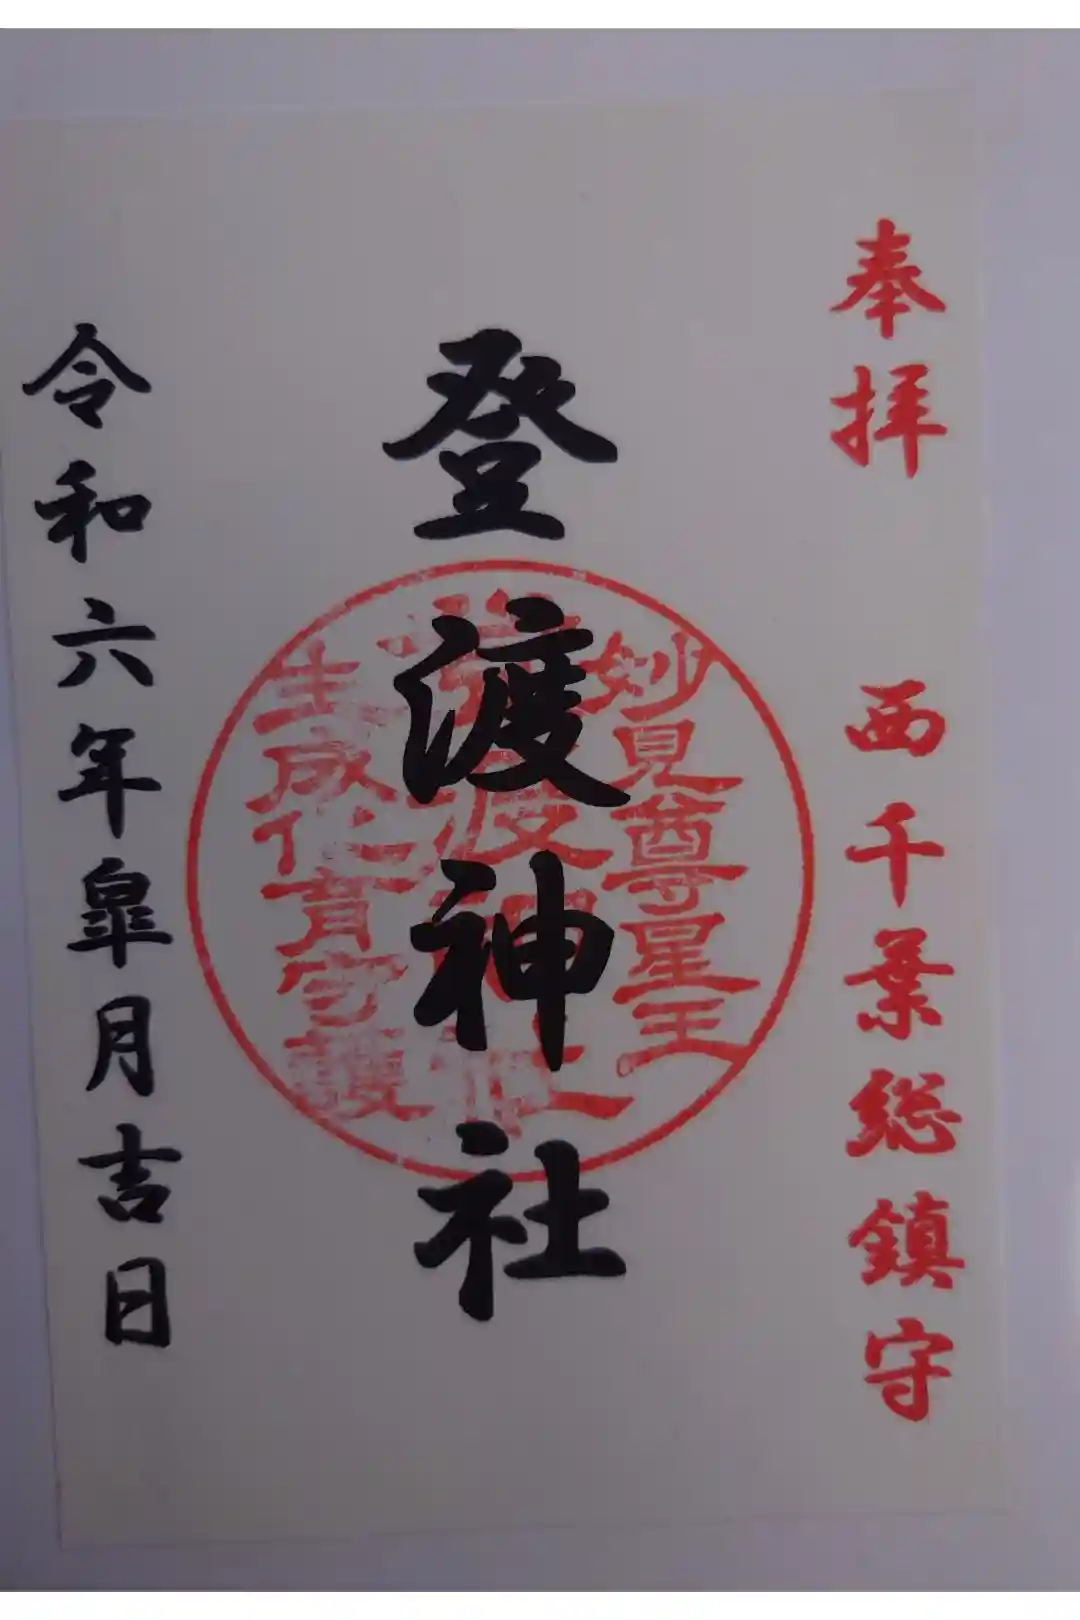 奉拝 西千葉総鎮守
登渡神社
妙見尊星王
登渡神社
生成化育守護
令和六年皐月吉日